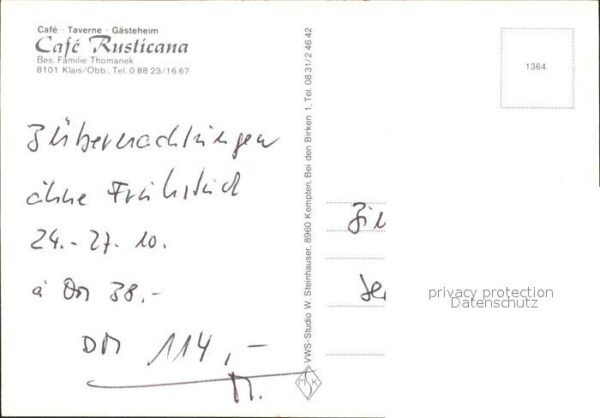 Café - Taverne - Gästeheim
Café Rusticana
Bes. Familie Thomanek
8101 Klais/Obb., Tel. 0 88 23/16 67
3 Übernachtungen
ohne Frühstück
24.-27. 10.
à DM 38.-
DM 114,-
VWS-Studio W. Steinhauser, 8960 Kempten, Bei den Birken 1, Tel. 08 31/2 46 42
1364
privacy protection
Datenschutz